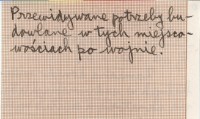 Przewidywane potrzeby bu-
dowlane w tych miejsco-
wościach po wojnie.